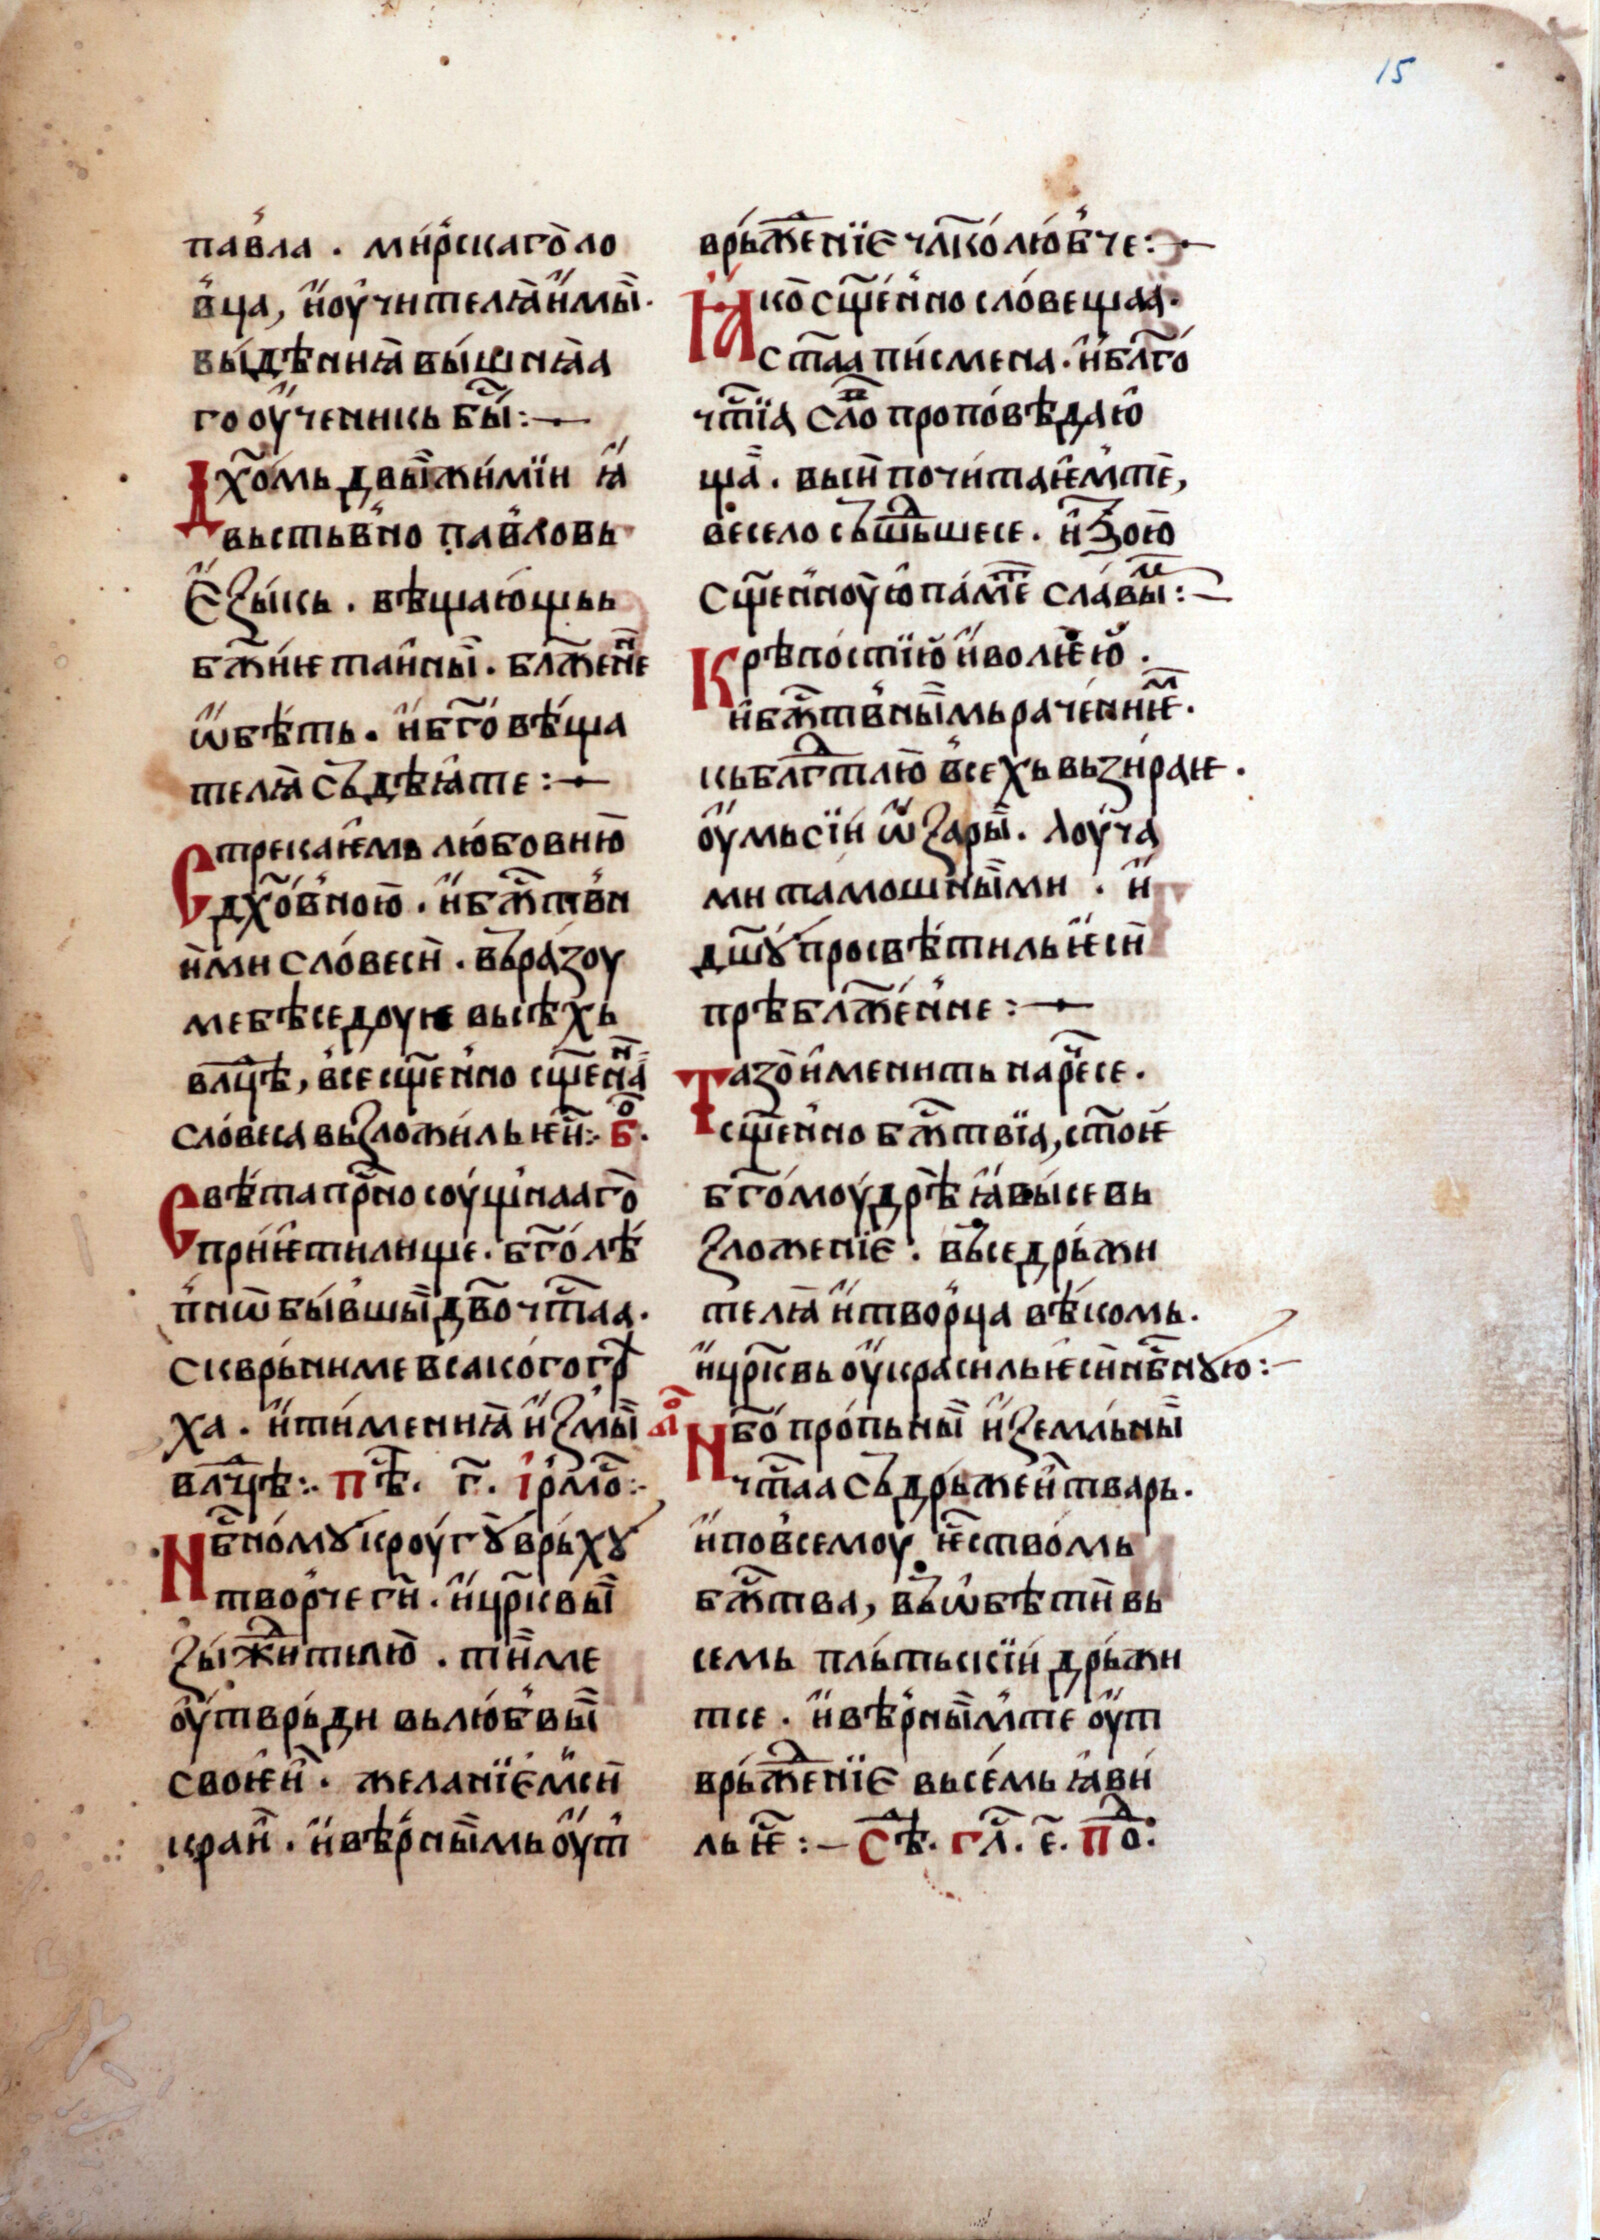 15
па́вла . ми́рскаго ло
вца, и҆ оу҆чи́телꙗ и҆мы̀.
вы́дѣннꙗ вы́шнꙗа
го оу҆ченикь бы̑ :—
Дх҃омь двы̀жимїи ꙗ҆
вьстьвно па́вловь
Є҆ꙁы́кь . вѣщаю́щьь
бж҃і́ѥ таи́ны̀ . бл҃же́нⷩ҇е
ѡ҆бѣ́ть . и҆ бг҃овѣ́ща
телꙗ̀ съдѣꙗ҆те :—
Стрекаѥмь любовню̀
дх҃о́вною̀ . и҆ бж҃твни
и́ми сло́веси̑ . въраꙁоу
ме бѣсѣдоуѥ вьсѣ́хь
вл҃цѣ, все сщ҃е́нно сщ҃енⷩ҇а
сло́веса вьꙁложи́ль ѥ҆си̑ :· б҃ⷪ.
Свѣ́та прⷭ҇но соу́щнааго̀
прїѥ́тилище . бг҃олѣ́
пнѡ бы́вшы̀ дв҃о чⷭ҇таа .
скврь́ни ме всакого грⷯѣ
ха . и҆ ти́меннꙗ и҆ꙁмы̀
вл҃чⷣцѣ :· пⷭ҇ѣ . г҃ . і҆рмⷭ҇о :·
Нбⷭ҇но́мꙋ кроу́гꙋ̀ врь́хꙋ
творче гⷭ҇и . и҆ црⷭ҇кви̑
ꙁы́ждителю̀ . ти̑ ме
оу҆тврь́ди вь лю́бвы̀
своѥ҆и̑ . жела́нїе́м си̑
краи̑ . и҆ вѣ́рны̀мь оу҆т
врь́ждⷣенїѥ чл҃ко́лю́бче :—
Ꙗко̀ сщ҃е́нно сло́вещаа .
ст҃аа пи́смена . и҆ бл҃го́
чⷭ҇тїа сл҃о пропо́вѣдаю҆
ща̀ . вьи̑ почи́таѥ́м те̑,
весело сьшⷣьшесе . и҆ тво́ю̀
сщ҃е́нноу́ю па́мⷮе сла́вы̀ :—
Крѣ́постїю̀ и҆ волѥю̀ .
и҆ бж҃твны̀мь раче́ниѥⷨ .
кь блⷣгⷭ҇тлю̀ всѣхь вьꙁи́раѥ .
оу҆мь сїи̑ ѿ ꙁары̀ . лоу́ча
ми тамошны̀ми . и҆
дш҃ꙋ̀ просвѣ́тиль ѥ҆си̑
прѣблже́нне :—
Таꙁо́и҆менить нарⷭ҇ече се .
сщ҃е́нно бж҃твїа, ст҃оѥ
бг҃омоу́дрѣ ꙗ҆вы́ се вь
ꙁложе́нїе . въседрьжи
телꙗ̀ и҆ творца вѣ́комь .
и҆ црⷭ҇квь оу҆красиль ѥ҆си̑ нбⷭ҇нꙋю :—
Нб҃о̀ про́пьны̀ и҆ ꙁемльны̀
чⷭ҇таа съдрь́жеи̑ тварь .
и҆ по все́моу ѥ҆ство́мь
бж҃тва, въѡбѣти̑ вь
семь пль́тьскїи дрь́жи
тсе . и҆ вѣ́рны̀м те́ оу҆т
врь́ждⷣенїѥ вьсе́мь ꙗ҆ви́
ль ѥ҆ :— Сⷣѣ . гл҃ . є҃ . поⷣ :